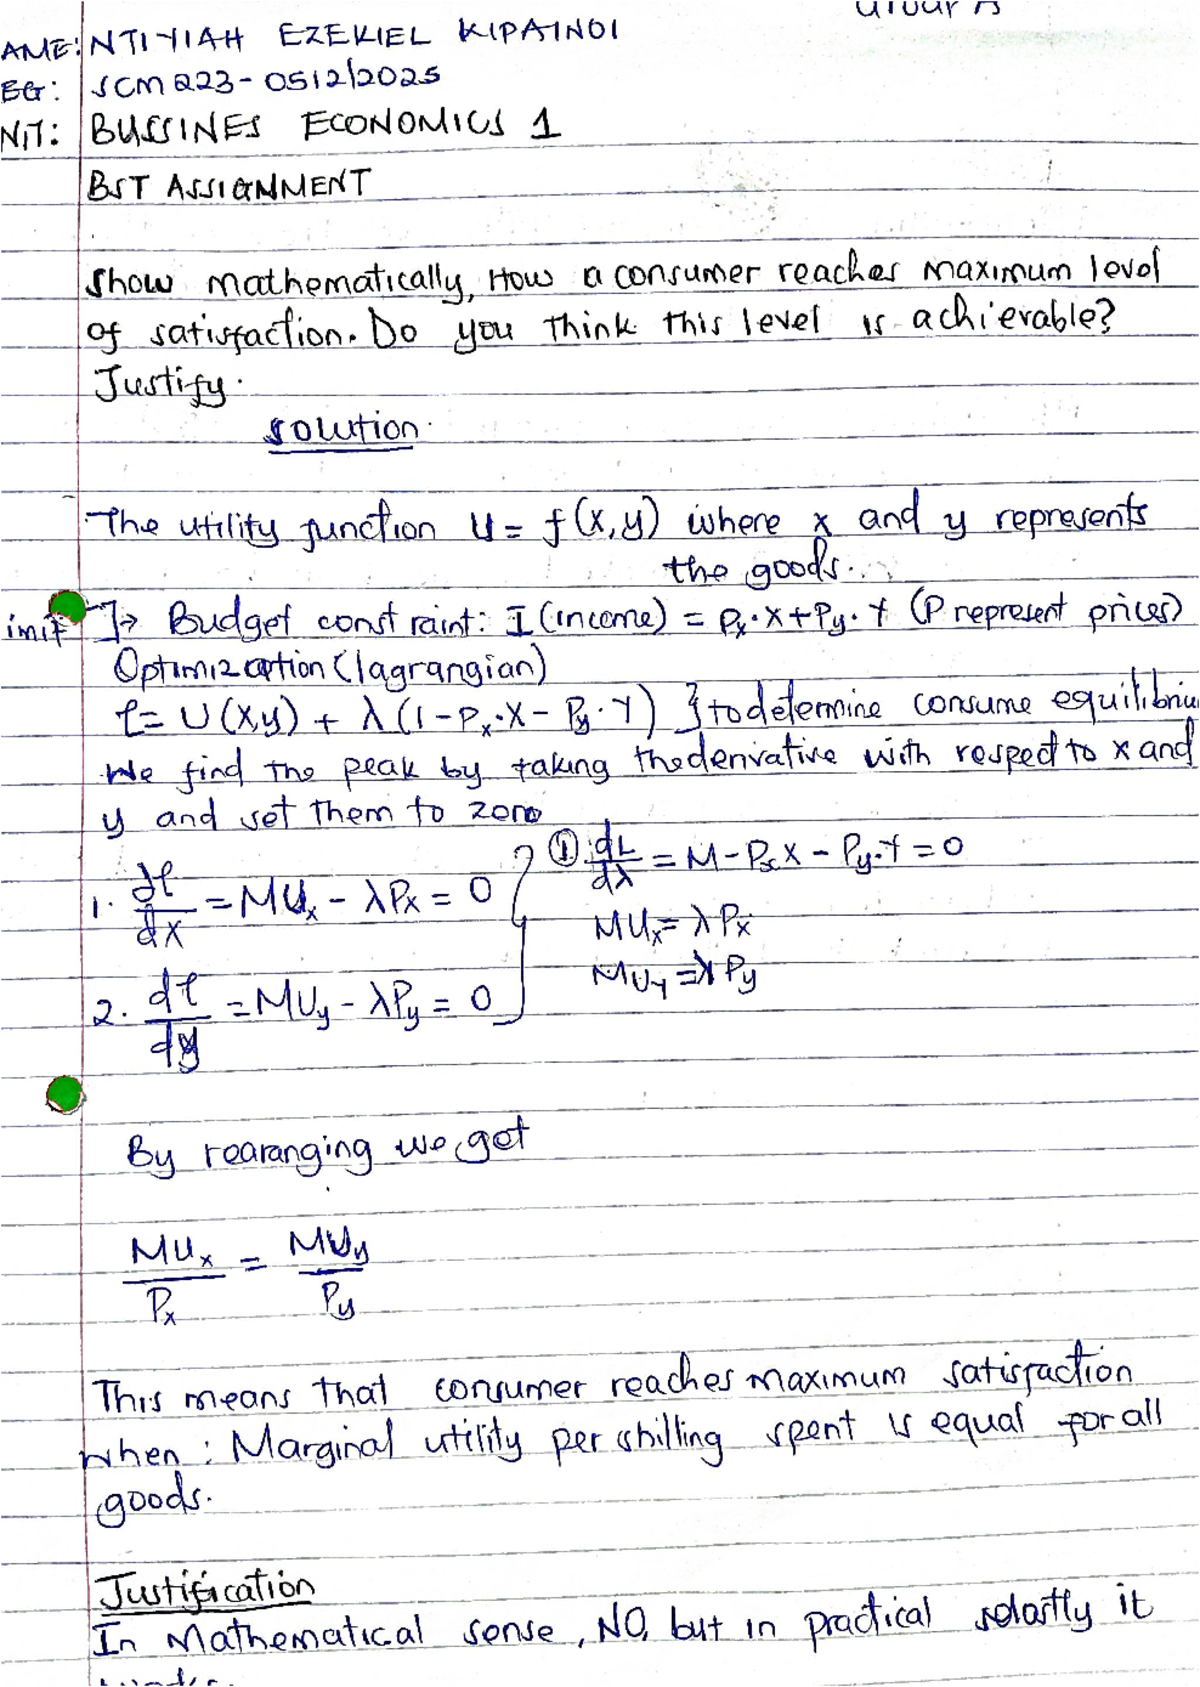 Group A
AME: NTIYIAH EZEKIEL KIPAINOI
EG: SCM 223-0512/2025
NIT: BUSSINES ECONOMICS 1
BST ASSIGNMENT
Show mathematically, How a consumer reaches maximum level
of satisfaction. Do you think this level is achievable?
Justify.
solution.
The utility function U = f(x,y) where x and y represents
the goods...
imit → Budget const raint: I (income) = Px·X+Py·Y (P represent prices)
Optimization (lagrangian)
ℓ= U(x,y) + λ(1-Px·X- Py·Y) } to determine consume equilibriu
We find the peak by taking the derivative with respect to x and
y and set them to zero
1. dℓ/dx = MUx - λPx = 0
2. dℓ/dy = MUy - λPy = 0
① dL/dλ = M - PxX - Py·Y = 0
MUx = λPx
MUy = λPy
By rearanging we get
MUx/Px = MUy/Py
This means that consumer reaches maximum satisfaction
when: Marginal utility per shilling spent is equal for all
goods.
Justification
In Mathematical sense, NO, but in practical it